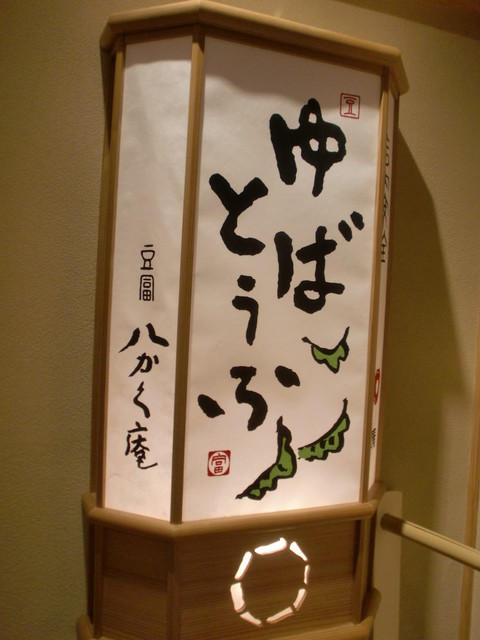 豆
ゆば
とうふ
富
豆富
八かく庵